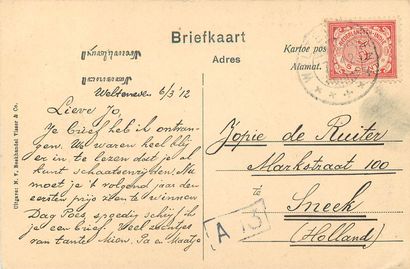 Briefkaart
Adres
Kartoe pos
Alamat.
NEDERLANDSCH-INDIË
Weltevreden 6/3 '12
Lieve Jo,
Je brief heb ik ontvan-
gen. Wat waren heel blij
er in te lezen dat je al
kunt schaatsenrijden. Nu
moet je 't volgend jaar den
eersten prijs zien te winnen
Dag Poes spoedig schrijf ik
je een brief. Veel zoentjes
van tante Miow, Pa en Maatje
Jopie de Ruiter
Markstraat 100
Te
Sneek
(Holland)
A 13
Uitgave: N. V. Boekhandel Visser & Co.